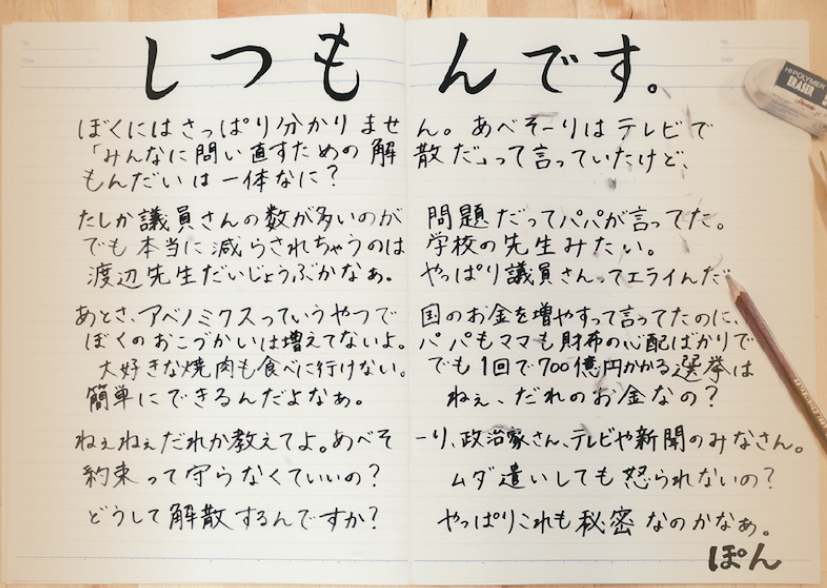 しつもんです。
ぼくにはさっぱり分かりません。あべそーりはテレビで
「みんなに問い直すための解散だ」って言っていたけど、
もんだいは一体なに?
たしか議員さんの数が多いのが問題だってパパが言ってた。
でも本当に減らされちゃうのは学校の先生みたい。
渡辺先生だいじょうぶかなぁ。やっぱり議員さんってエライんだ
あとさ、アベノミクスっていうやつで国のお金を増やすって言ってたのに、
ぼくのおこづかいは増えてないよ。パパもママも財布の心配ばかりで
大好きな焼肉も食べに行けない。でも1回で700億円かかる選挙は
簡単にできるんだよなぁ。ねぇ、だれのお金なの?
ねぇねぇだれか教えてよ。あべそーり、政治家さん、テレビや新聞のみなさん。
約束って守らなくていいの?ムダ遣いしても怒られないの?
どうして解散するんですか?やっぱりこれも秘密なのかなぁ。
ぽん
HI-POLYMER
ERASER